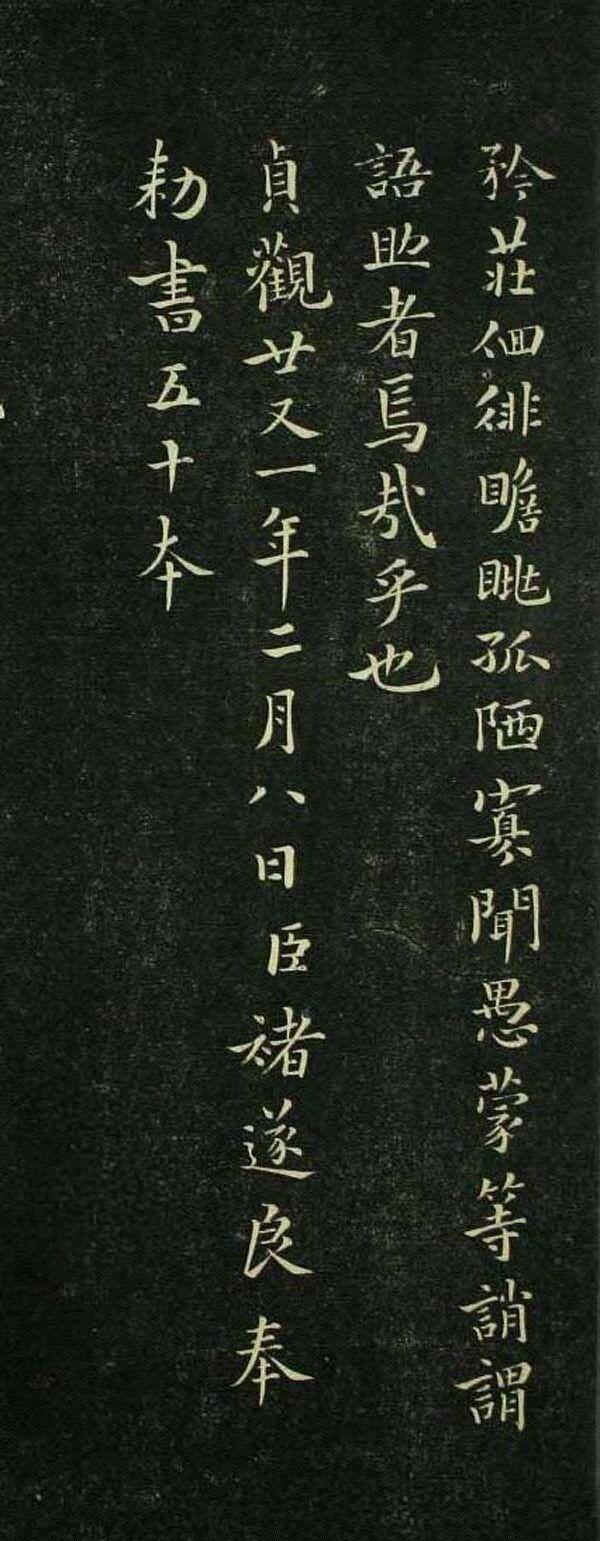 矜莊徊徘瞻眺孤陋寡聞愚蒙等誚謂
語助者焉哉乎也
貞觀廿又一年二月八日臣褚遂良奉
勑書五十本